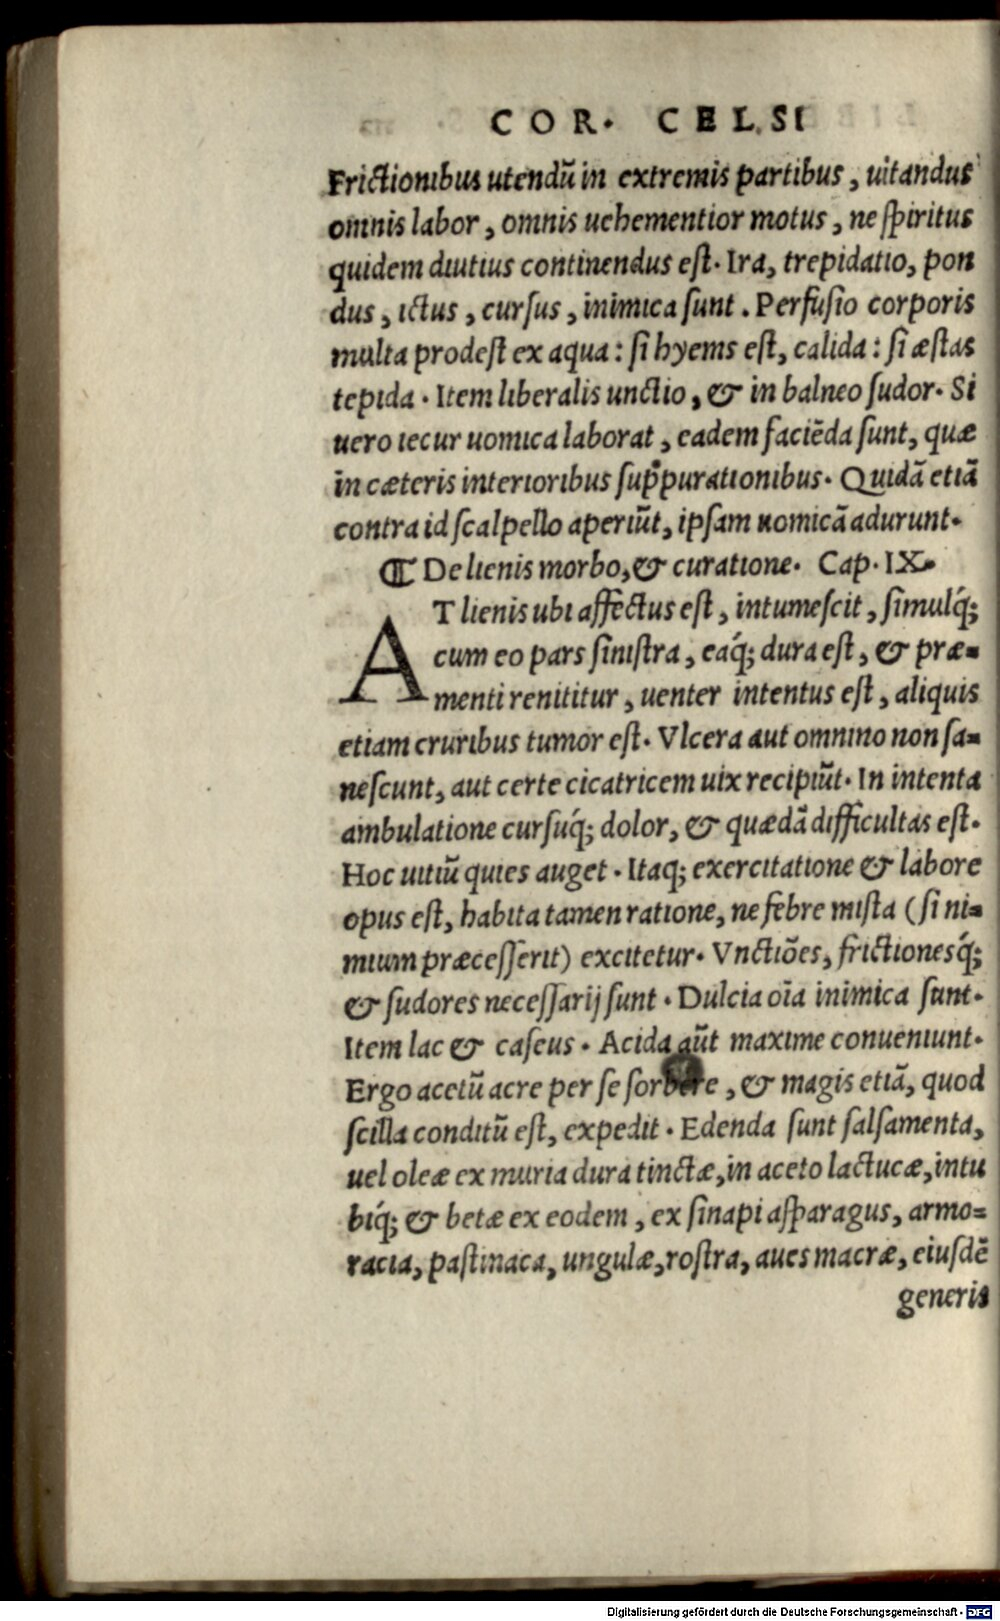 COR. CELSI
Frictionibus utendũ in extremis partibus, uitandus
omnis labor, omnis uehementior motus, ne spiritus
quidem diutius continendus est. Ira, trepidatio, pon
dus, ictus, cursus, inimica sunt. Perfusio corporis
multa prodest ex aqua: si hyems est, calida: si æstas
tepida. Item liberalis unctio, & in balneo sudor. Si
uero iecur uomica laborat, eadem faciẽda sunt, quæ
in cæteris interioribus suppurationibus. Quidã etiã
contra id scalpello aperiũt, ipsam uomicã adurunt.
¶ De lienis morbo, & curatione. Cap. IX.
AT lienis ubi affectus est, intumescit, simulq́;
cum eo pars sinistra, eaq́; dura est, & præ=
menti renititur, uenter intentus est, aliquis
etiam cruribus tumor est. Vlcera aut omnino non sa=
nescunt, aut certe cicatricem uix recipiũt. In intenta
ambulatione cursuq́; dolor, & quædã difficultas est.
Hoc uitiũ quies auget. Itaq; exercitatione & labore
opus est, habita tamen ratione, ne febre mista (si ni=
mium præcesserit) excitetur. Vnctiões, frictionesq́;
& sudores necessarij sunt. Dulcia oĩa inimica sunt.
Item lac & caseus. Acida aũt maxime conueniunt.
Ergo acetũ acre per se sorbere, & magis etiã, quod
scilla conditũ est, expedit. Edenda sunt salsamenta,
uel oleæ ex muria dura tinctæ, in aceto lactucæ, intu
biq́; & betæ ex eodem, ex sinapi asparagus, armo=
racia, pastinaca, ungulæ, rostra, aues macræ, eiusdẽ
generis
Digitalisierung gefördert durch die Deutsche Forschungsgemeinschaft - DFG